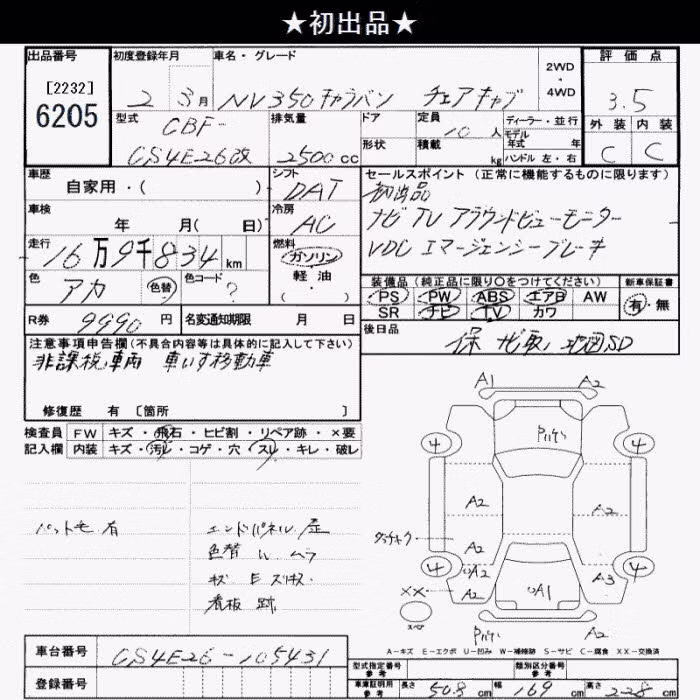 ★初出品★
出品番号 初度登録年月 車名・グレード 2WD・4WD 評価点
[2232]
6205
2 3月 NV350キャラバン チェアキャブ 3.5
型式 排気量 ドア 定員 10人 ディーラー・並行 外装 内装
CBF-
CS4E26改 2500cc 形状 積載 kg モデル年式 年 C C
ハンドル 左・右
車歴 シフト セールスポイント (正常に機能するものに限ります)
自家用・( ) DAT 初出品
車検 冷房 ナビ TV アラウンドビューモニター
年 月( 日) AC VDC エマージェンシーブレーキ
走行 燃料
16万9千834km ガソリン
軽油・( )
色 アカ 色替 色コード ?
装備品 (純正品に限り〇をつけてください) 新車保証書
PS PW ABS エアB AW 有・無
SR ナビ TV カワ
R券 9990円 名変通知期限 月 日
後日品 保 ナビ取 地図SD
注意事項申告欄(不具合内容等は具体的に記入して下さい)
非課税車両 車いす移動車
修復歴 有 [箇所 ]
検査員 FW キズ・飛石・ヒビ割・リペア跡・×要
記入欄 内装 キズ・汚レ・コゲ・穴・スレ・キレ・破レ
A1 A2
4 4
A2 A2
A2
4 A2 A1 A3 4
A2 A2
××
エンドパネル 歪
色替 ムラ
看板 跡
A-キズ E-エクボ U-凹み W-補修跡 S-サビ C-腐食 XX-交換済
車台番号 CS4E26-105431
登録番号
型式指定番号 参考 類別区分番号 参考
車庫証明用 参考 長さ 508cm 幅 169cm 高さ 228cm